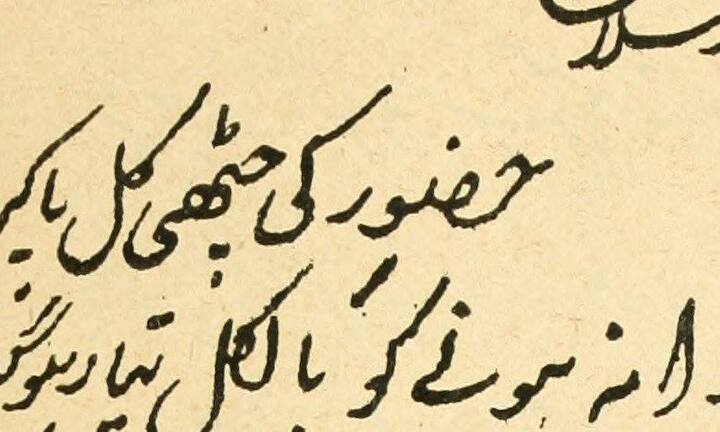 حضور کی چٹھی کل پاکر
روانہ ہونے کو بالکل تیار ہو گئے